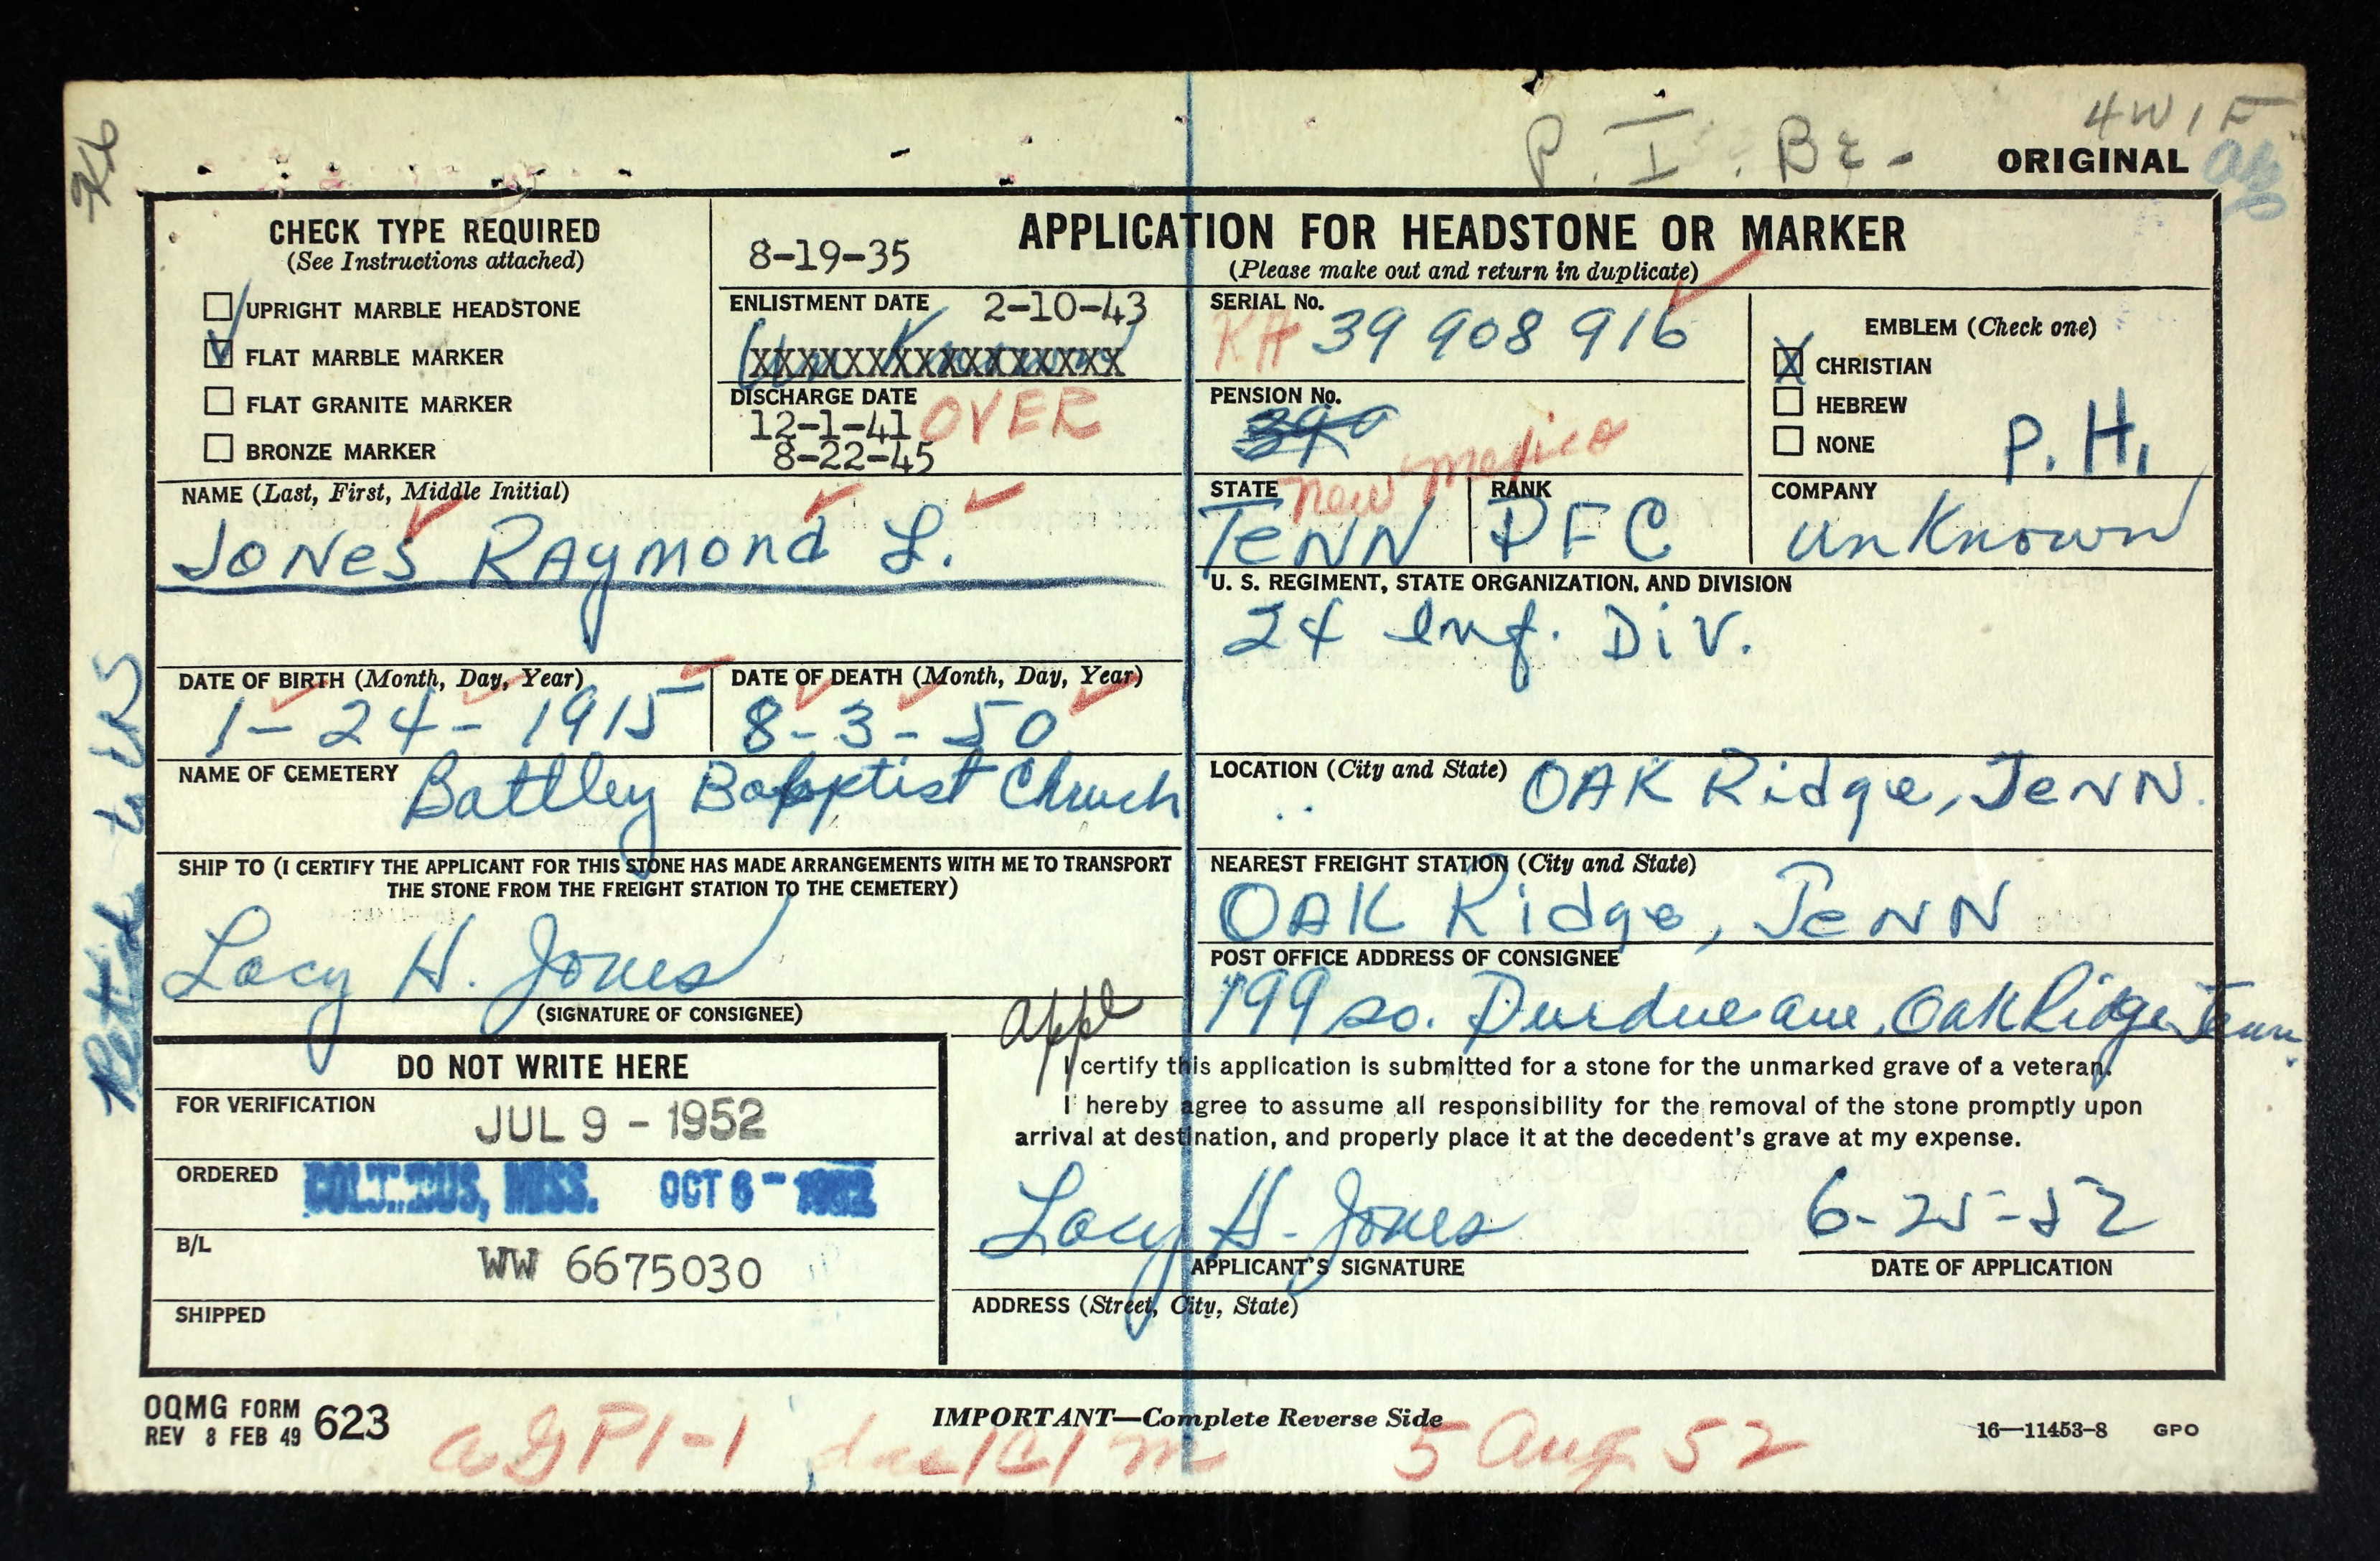 4W1F
P. I. Br-
ORIGINAL
CHECK TYPE REQUIRED
(See Instructions attached)
UPRIGHT MARBLE HEADSTONE
FLAT MARBLE MARKER
FLAT GRANITE MARKER
BRONZE MARKER
8-19-35
ENLISTMENT DATE 2-10-43
Un Known
XXXXXXXXXXXXXXXX
DISCHARGE DATE
12-1-41 OVER
8-22-45
APPLICATION FOR HEADSTONE OR MARKER
(Please make out and return in duplicate)
SERIAL No.
RA 39 908 916
PENSION No.
390
EMBLEM (Check one)
X CHRISTIAN
HEBREW
NONE
P. H.
NAME (Last, First, Middle Initial)
JONES RAYMOND L.
STATE New Mexico
TENN
RANK
PFC
COMPANY
unKnown
U. S. REGIMENT, STATE ORGANIZATION, AND DIVISION
24 Inf. Div.
DATE OF BIRTH (Month, Day, Year)
1-24-1915
DATE OF DEATH (Month, Day, Year)
8-3-50
NAME OF CEMETERY Battley Bapptist Chruch
LOCATION (City and State) OAK Ridge, TENN.
SHIP TO (I CERTIFY THE APPLICANT FOR THIS STONE HAS MADE ARRANGEMENTS WITH ME TO TRANSPORT
THE STONE FROM THE FREIGHT STATION TO THE CEMETERY)
Lacy H. Jones
(SIGNATURE OF CONSIGNEE)
NEAREST FREIGHT STATION (City and State)
OAK Ridge, TENN
POST OFFICE ADDRESS OF CONSIGNEE
199 So. Purdue ave, Oak Ridge Tenn.
appl
DO NOT WRITE HERE
FOR VERIFICATION
JUL 9 - 1952
ORDERED COLUMBUS, MISS. OCT 6 - 1952
B/L
WW 6675030
SHIPPED
I certify this application is submitted for a stone for the unmarked grave of a veteran.
I hereby agree to assume all responsibility for the removal of the stone promptly upon
arrival at destination, and properly place it at the decedent's grave at my expense.
Lacy H. Jones 6-25-52
APPLICANT'S SIGNATURE DATE OF APPLICATION
ADDRESS (Street, City, State)
OQMG FORM 623
REV 8 FEB 49
IMPORTANT—Complete Reverse Side
16—11453-8 GPO
5 Aug 52